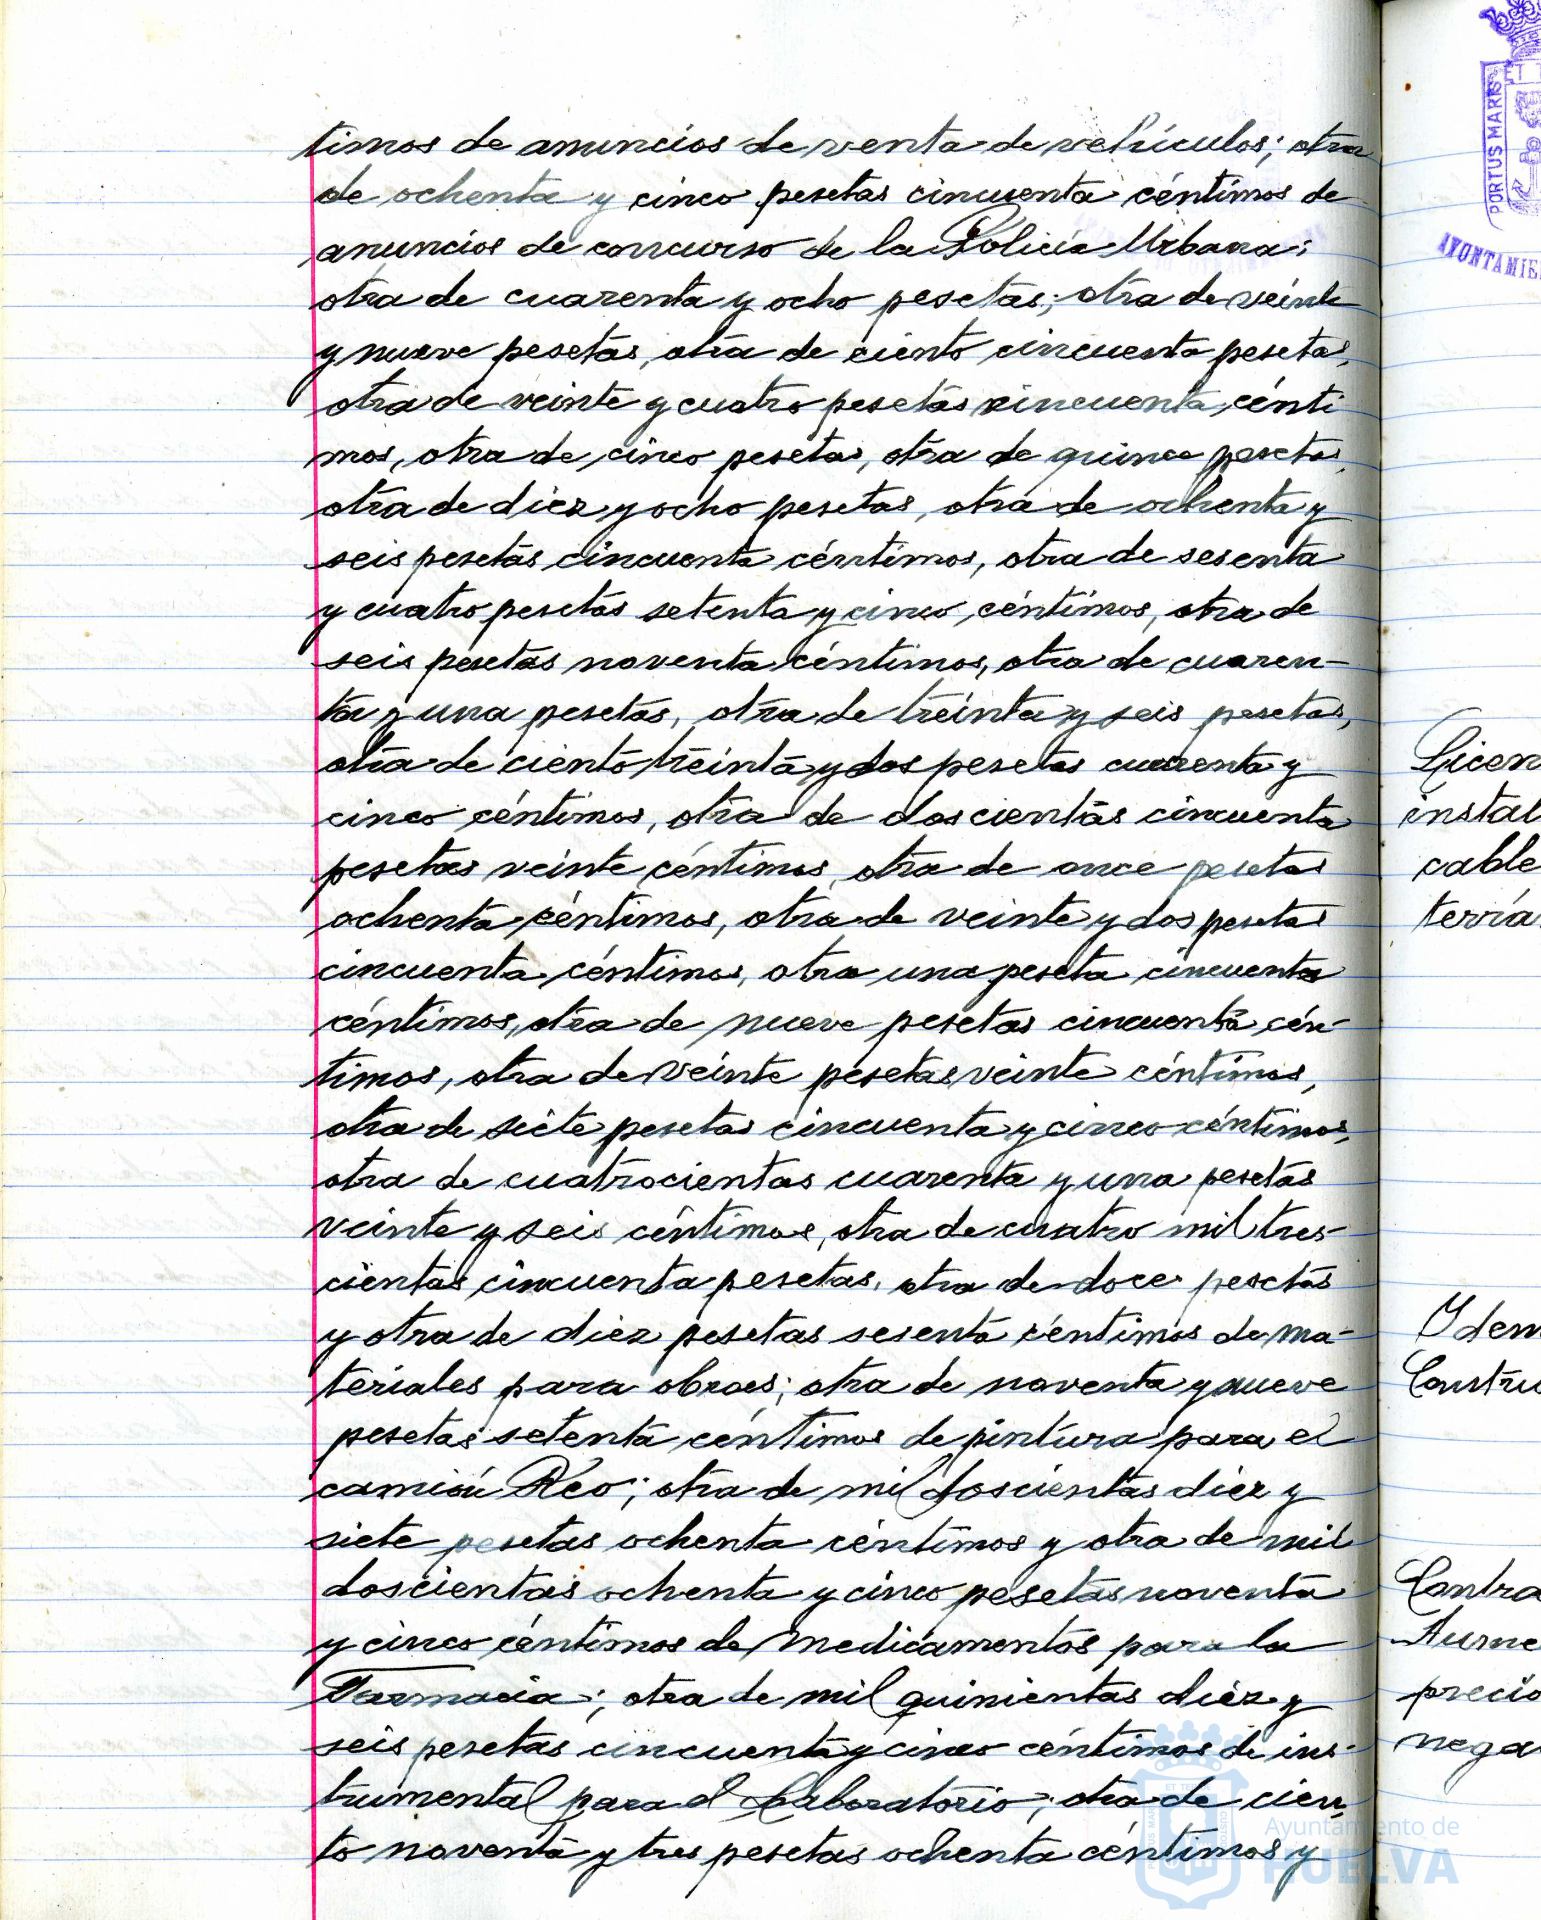 timos de anuncios de venta de vehículos; otra
de ochenta y cinco pesetas cincuenta céntimos de
anuncios de concurso de la Policía Urbana;
otra de cuarenta y ocho pesetas; otra de veinte
y nueve pesetas, otra de ciento cincuenta pesetas,
otra de veinte y cuatro pesetas cincuenta cénti
mos, otra de cinco pesetas, otra de quince pesetas,
otra de diez y ocho pesetas, otra de ochenta y
seis pesetas cincuenta céntimos, otra de sesenta
y cuatro pesetas setenta y cinco céntimos, otra de
seis pesetas noventa céntimos, otra de cuaren-
ta y una pesetas, otra de treinta y seis pesetas,
otra de ciento treinta y dos pesetas cuarenta y
cinco céntimos, otra de doscientas cincuenta
pesetas veinte céntimos, otra de once pesetas
ochenta céntimos, otra de veinte y dos pesetas
cincuenta céntimos, otra una peseta cincuenta
céntimos, otra de nueve pesetas cincuenta cén-
timos, otra de veinte pesetas veinte céntimos,
otra de siete pesetas cincuenta y cinco céntimos,
otra de cuatrocientas cuarenta y una pesetas
veinte y seis céntimos, otra de cuatro mil tres-
cientas cincuenta pesetas, otra de doce pesetas
y otra de diez pesetas sesenta céntimos de ma-
teriales para obras; otra de noventa y nueve
pesetas setenta céntimos de pintura para el
camión Reo; otra de mil doscientas diez y
siete pesetas ochenta céntimos y otra de mil
doscientas ochenta y cinco pesetas noventa
y cinco céntimos de medicamentos para la
Farmacia; otra de mil quinientas diez y
seis pesetas cincuenta y cinco céntimos de ins-
trumental para el Laboratorio; otra de cien-
to noventa y tres pesetas ochenta céntimos y
PORTUS MARIS
ET T
AYUNTAMIE
Licen
instal
cable
terría
Ydem
Constru
Contra
Aume
precio
nega
Ayuntamiento de
HUELVA